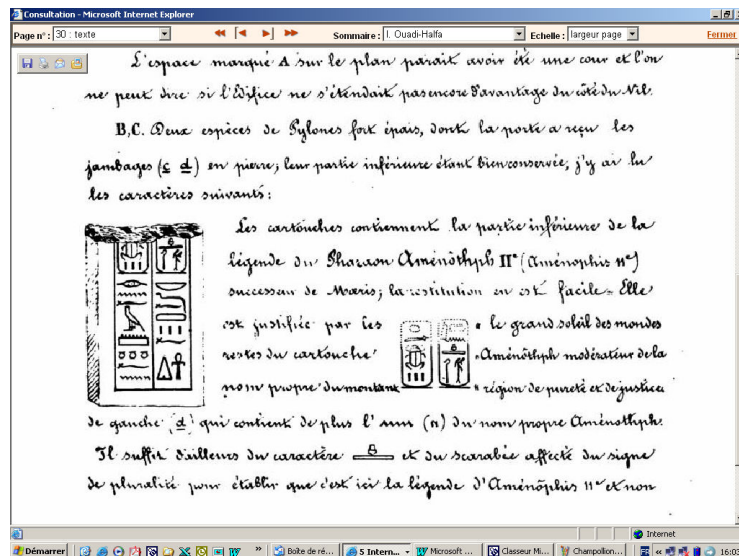 Consultation - Microsoft Internet Explorer
Page n° : 30 : texte Sommaire : I. Ouadi-Halfa Echelle : largeur page Fermer
L'espace marqué A sur le plan parait avoir été une cour et l'on
ne peut dire si l'Edifice ne s'étendait pas encore d'avantage du côté du Nil.
B, C. Deux espèces de Pylones fort épais, dont la porte a reçu les
jambages (c d) en pierre; leur partie inférieure étant bien conservée, j'y ai lu
les caractères suivants:
Les cartouches contiennent la partie inférieure de la
légende du Pharaon Aménôthph IIe (Aménophis IIe)
successeur de Mœris; la restitution en est facile. Elle
est justifiée par les " le grand soleil des mondes
restes du cartouche " Aménôthph modérateur de la
nom propre du montant " région de pureté et de justice
de gauche (d) qui contient de plus l' (n) du nom propre Aménothph.
Il suffit d'ailleurs du caractère et du scarabée affecté du signe
de pluralité pour établir que c'est ici la légende d'Aménôphis IIe et non
Internet
Démarrer Boîte de ré... 5 Intern... Microsoft ... Classeur Mi... Champollion... 16:03